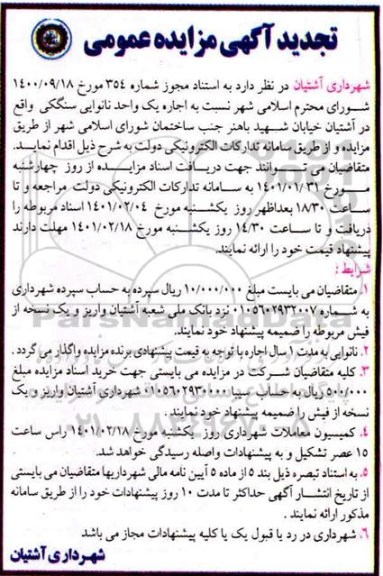 تجدید آگهی مزایده عمومی
شهرداری آشتیان در نظر دارد به استناد مجوز شماره ۳۵۴ مورخ ۱۴۰۰/۰۹/۱۸
شورای محترم اسلامی شهر نسبت به اجاره یک واحد نانوایی سنگکی واقع
در آشتیان خیابان شهید باهنر جنب ساختمان شورای اسلامی شهر از طریق
مزایده و از طریق سامانه تدارکات الکترونیکی دولت به شرح ذیل اقدام نماید.
متقاضیان می توانند جهت دریافت اسناد مزایده از روز چهارشنبه
مورخ ۱۴۰۱/۰۱/۳۱ به سامانه تدارکات الکترونیکی دولت مراجعه و تا
ساعت ۱۸/۳۰ بعداظهر روز یکشنبه مورخ ۱۴۰۱/۰۲/۰۴ اسناد مربوطه را
دریافت و تا ساعت ۱۴/۳۰ روز یکشنبه مورخ ۱۴۰۱/۰۲/۱۸ مهلت دارند
پیشنهاد قیمت خود را ارائه نمایند.
شرایط :
۱. متقاضیان می بایست مبلغ ۱۰/۰۰۰/۰۰۰ ریال سپرده به حساب سپرده شهرداری
به شماره ۰۱۰۵۶۰۲۹۳۲۰۰۷ نزد بانک ملی شعبه آشتیان واریز و یک نسخه از
فیش مربوطه را ضمیمه پیشنهاد خود نمایند.
۲. نانوایی به مدت ۱ سال اجاره با توجه به قیمت پیشنهادی برنده مزایده واگذار می گردد .
۳. کلیه متقاضیان شرکت در مزایده می بایستی جهت خرید اسناد مزایده مبلغ
۵۰۰/۰۰۰ ریال به حساب سیبا ۰۱۰۵۶۰۲۹۳۰۰۰۰ شهرداری آشتیان واریز و یک
نسخه از فیش را ضمیمه پیشنهاد خود نمایند .
۴. کمیسیون معاملات شهرداری روز یکشنبه مورخ ۱۴۰۱/۰۲/۱۸ راس ساعت
۱۵ عصر تشکیل و به پیشنهادات واصله رسیدگی خواهد شد.
۵. به استناد تبصره ذیل بند ۵ از ماده ۵ آیین نامه مالی شهرداریها متقاضیان می بایستی
از تاریخ انتشار آگهی حداکثر تا مدت ۱۰ روز پیشنهادات خود را از طریق سامانه
مذکور ارائه نمایند .
۶. شهرداری در رد یا قبول یک یا کلیه پیشنهادات مجاز می باشد
شهرداری آشتیان